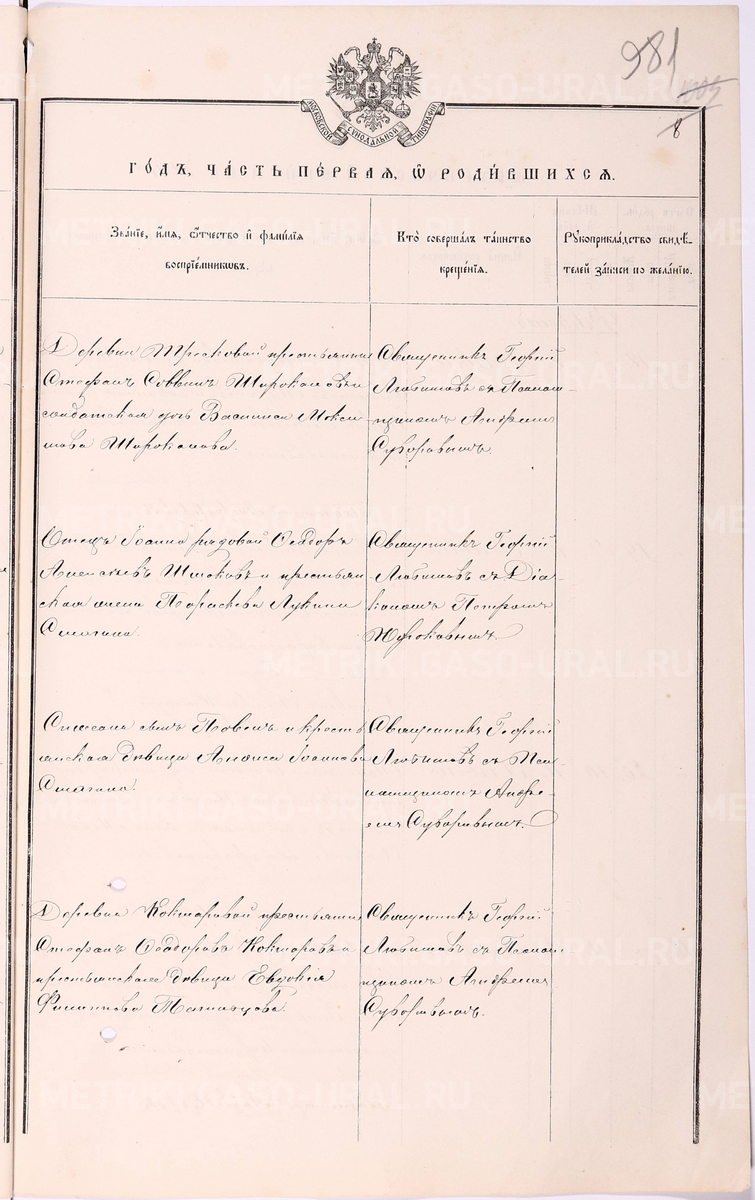 981
1005
8
МОСКОВСКОЙ СѴНОДАЛЬНОЙ ТИПОГРАФІИ
ГО́ДЪ, ЧА́СТЬ ПЕ́РВАЯ, Ѡ҆ РОДИ́ВШИХСЯ.
Зва́нїе, и҆́мя, ѻ҆́тчество и҆ фами́лїя
воспрїе́мниковъ.
Кто̀ соверша́лъ та́инство
креще́нїя.
Рꙋкоприкла́дство свидѣ́-
телей за́писи по жела́нїю.
Деревни Трековой крестьянинъ
Стефанъ Саввинъ Широкаловъ и
солдатская дочь Василиса Макси
мова Широкалова.
Священникъ Георгій
Любимовъ съ Псалом
щикомъ Андреемъ
Суворовымъ.
Отецъ Іоанна рядовой Ѳеодоръ
Алексѣевъ и крестьян
ская жена Параскева Лукина
Смагина.
Священникъ Георгій
Любимовъ съ Діа-
кономъ Петромъ
Павелъ и кресть
янская дѣвица Анѳиса Іоаннова
Смагина.
Священникъ Георгій
Любимовъ съ Пса
ломщикомъ Андре-
емъ Суворовымъ.
Деревни Кокшаровой крестьянинъ
Стефанъ Ѳеодоровъ Кокшаровъ и
крестьянская дѣвица Евдокія
Филиппова
Священникъ Георгій
Любимовъ съ Псалом
щикомъ Андреемъ
Суворовымъ.
METRIKI.GASO-URAL.RU